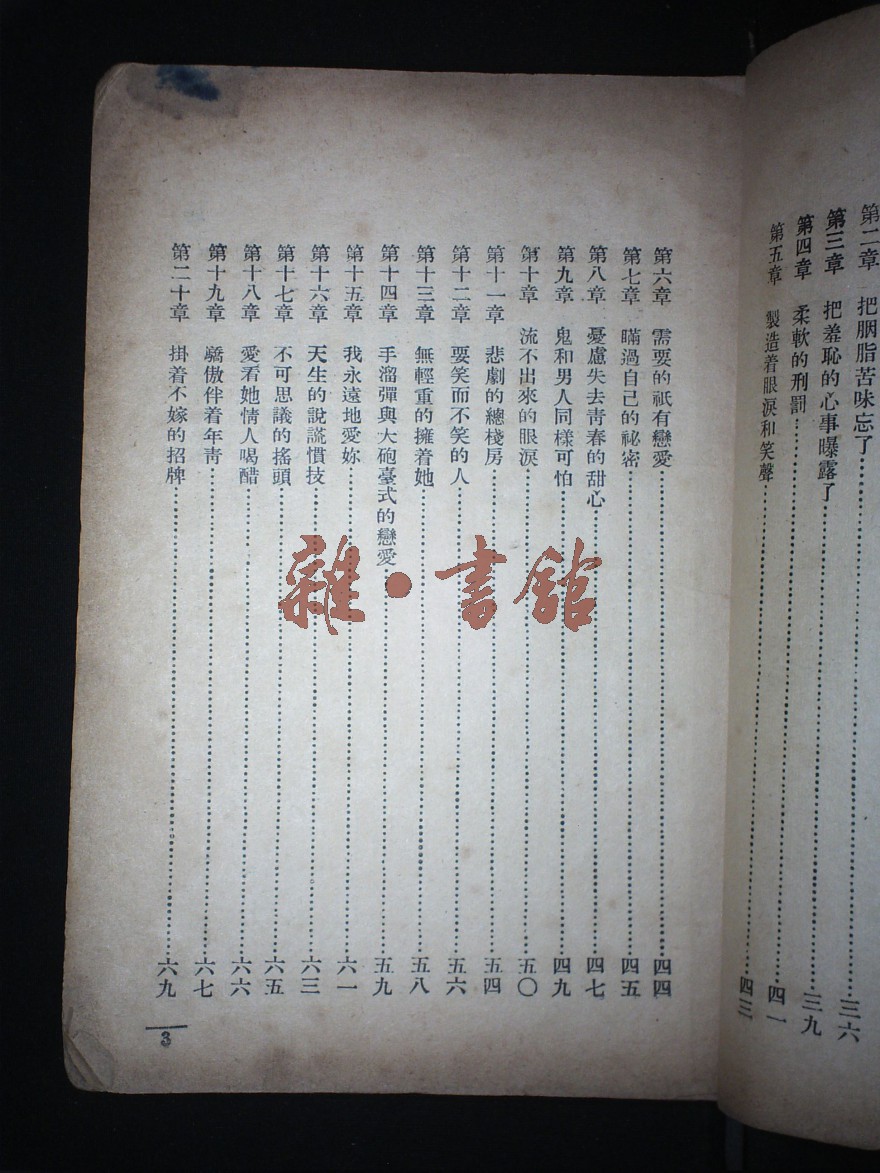 第二章　把胭脂苦味忘了……………………三六
第三章　把羞恥的心事曝露了……………………三九
第四章　柔軟的刑罰……………………四一
第五章　製造着眼淚和笑聲……………………四三
第六章　需要的祇有戀愛……………………四四
第七章　瞞過自己的祕密……………………四五
第八章　憂慮失去靑春的甜心……………………四七
第九章　鬼和男人同樣可怕……………………四九
第十章　流不出來的眼淚……………………五〇
第十一章　悲劇的總棧房……………………五四
第十二章　要笑而不笑的人……………………五六
第十三章　無輕重的擁着她……………………五八
第十四章　手溜彈與大砲臺式的戀愛……………………五九
第十五章　我永遠地愛妳……………………六一
第十六章　天生的說謊慣技……………………六三
第十七章　不可思議的搖頭……………………六五
第十八章　愛看她情人喝醋……………………六六
第十九章　驕傲伴着年靑……………………六七
第二十章　掛着不嫁的招牌……………………六九
3
雜·書館